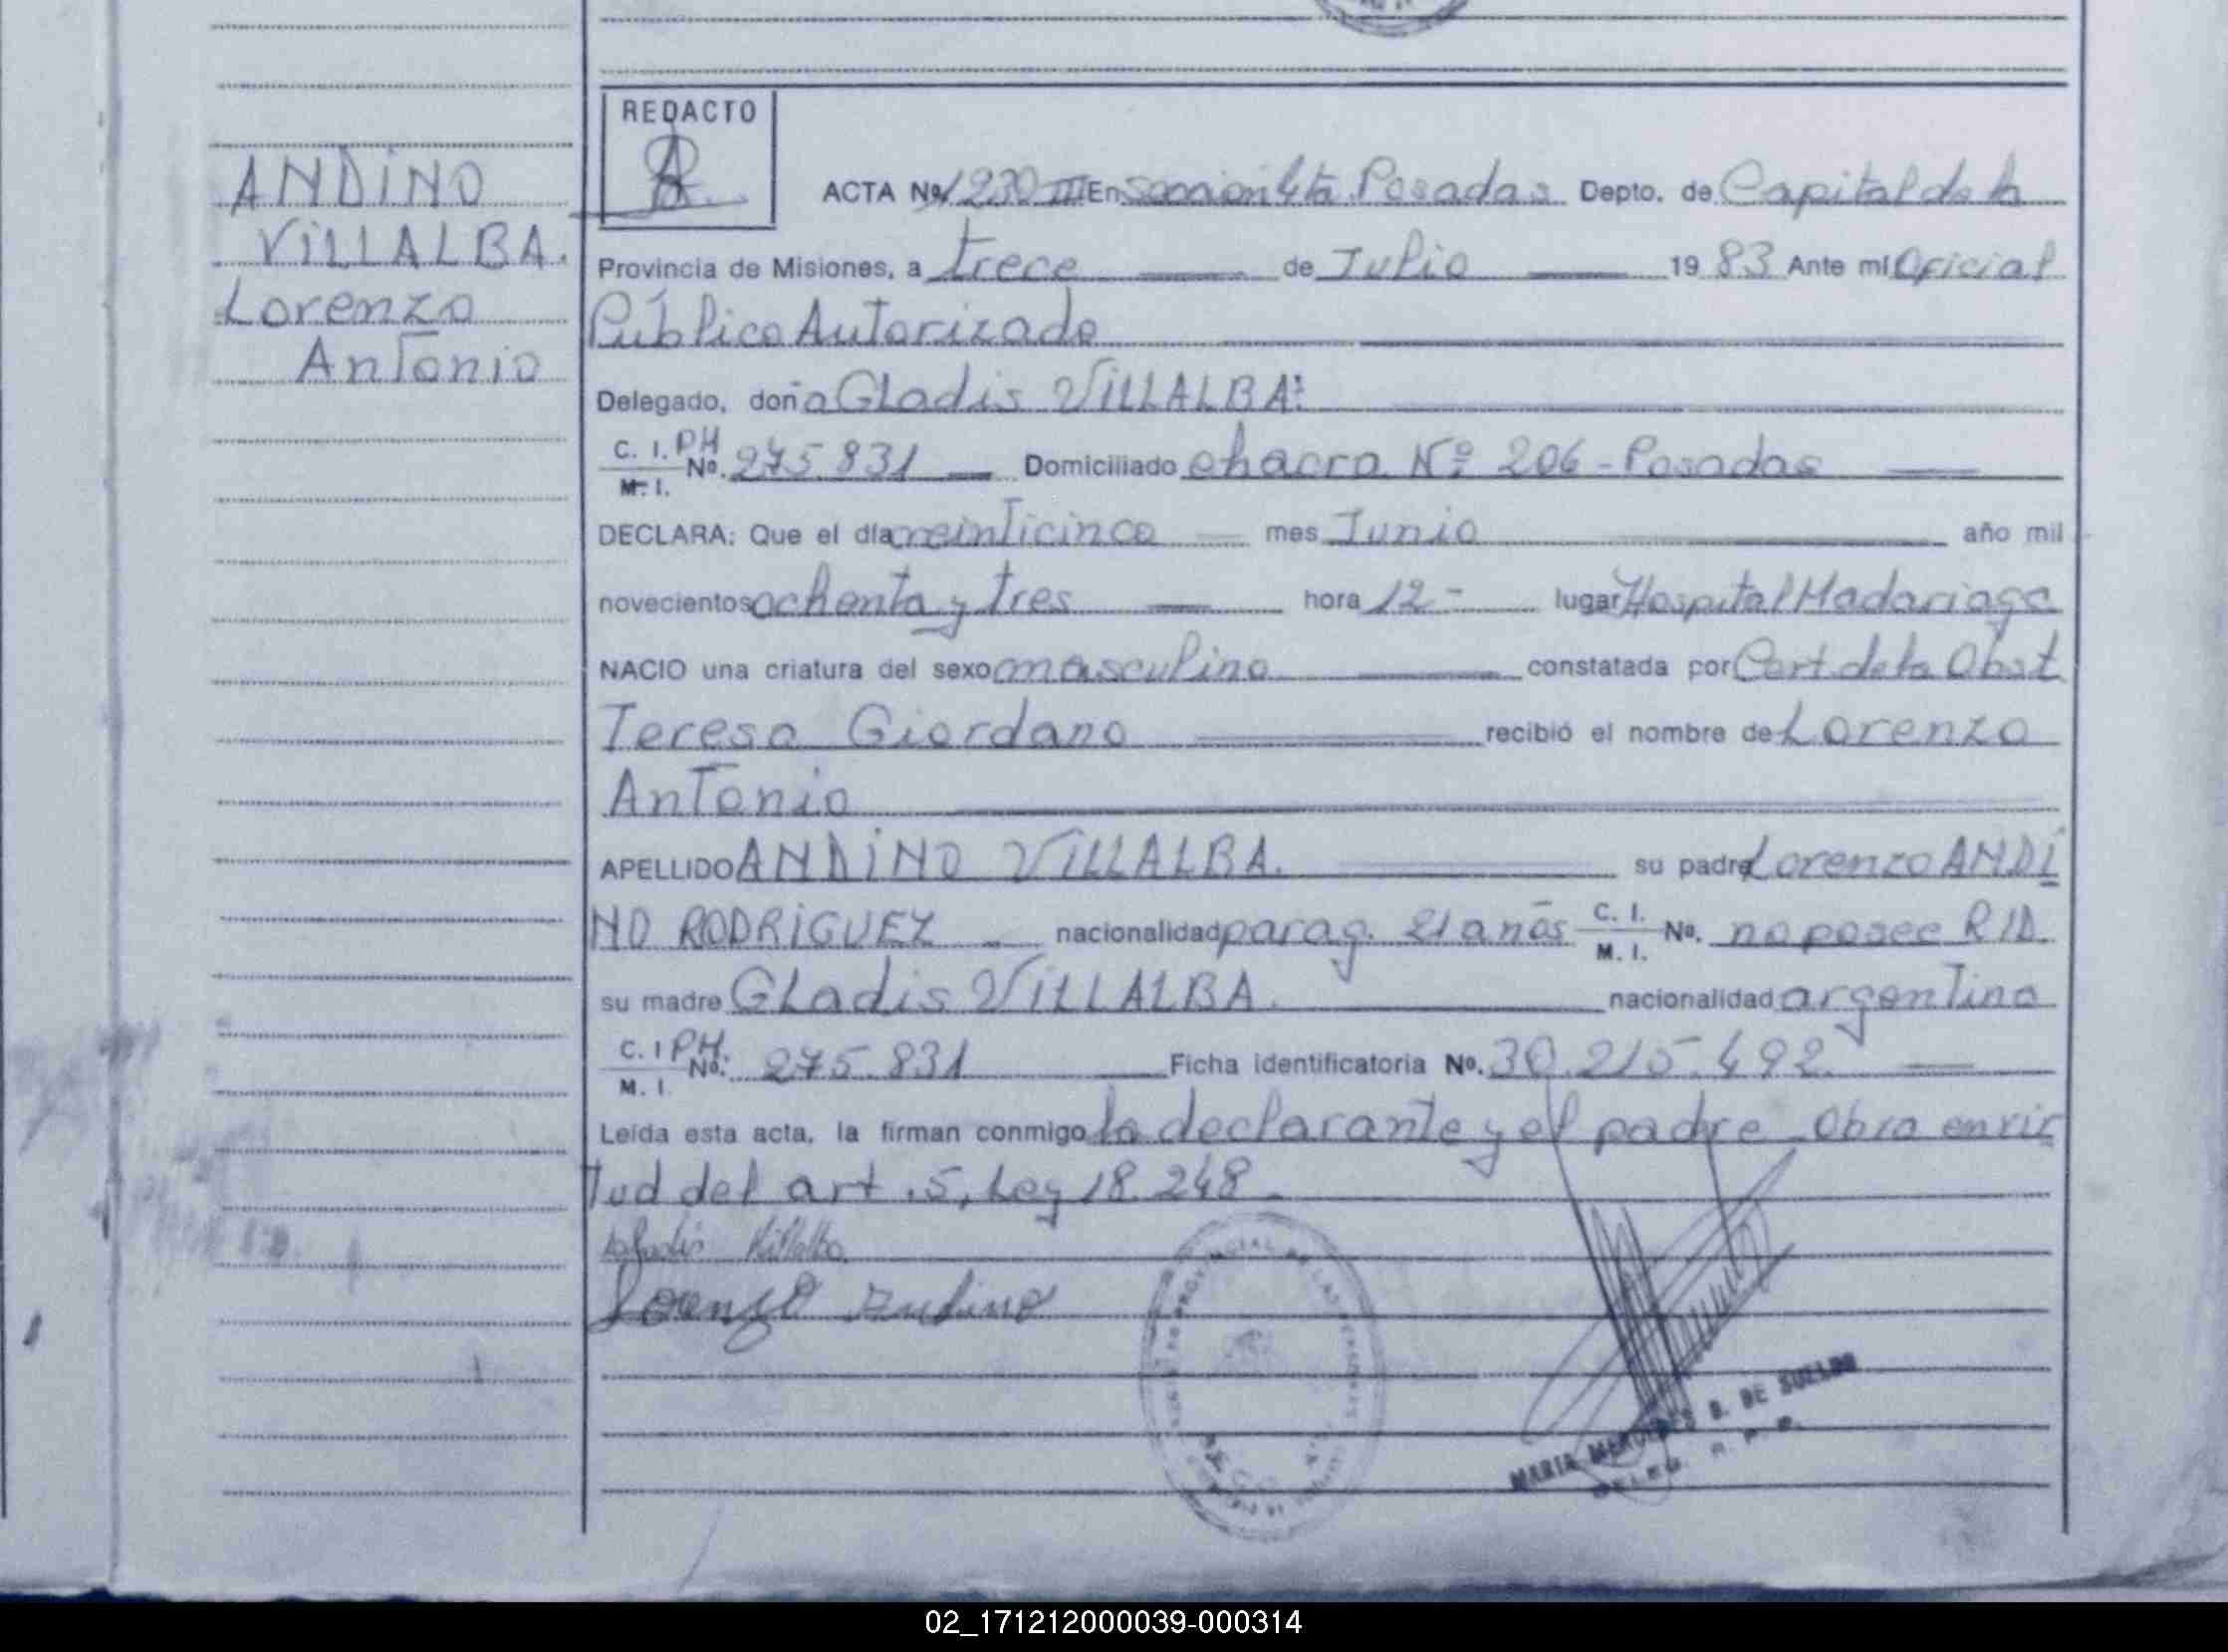 ANDINO
VILLALBA.
Lorenzo
Antonio
REDACTO
ACTA No. 1230 III En sección 4ta. Posadas Depto. de Capital de la
Provincia de Misiones, a trece de Julio 19 83 Ante mí Oficial
Público Autorizado
Delegado, doña Gladis VILLALBA:
C. I. PH No. 275.831 Domiciliado chacra Nº 206 - Posadas
M. I.
DECLARA: Que el día veinticinco mes Junio año mil
novecientos ochenta y tres hora 12- lugar Hospital Madariaga
NACIO una criatura del sexo masculino constatada por Cert. de la Obst
Teresa Giordano recibió el nombre de Lorenzo
Antonio
APELLIDO ANDINO VILLALBA. su padre Lorenzo ANDI
NO RODRIGUEZ nacionalidad parag. 21 años C. I. No. no posee
M. I.
su madre Gladis VILLALBA. nacionalidad argentina
C. I PH. No. 275.831 Ficha identificatoria No. 30.215.492
M. I.
Leída esta acta, la firman conmigo la declarante y el padre. Obra en vir
tud del art. 5, Ley 18.248.
Gladis Villalba
Lorenzo Andino
MARIA MERCEDES B. DE SUELDO
DELEG. R. P. P.
02_171212000039-000314